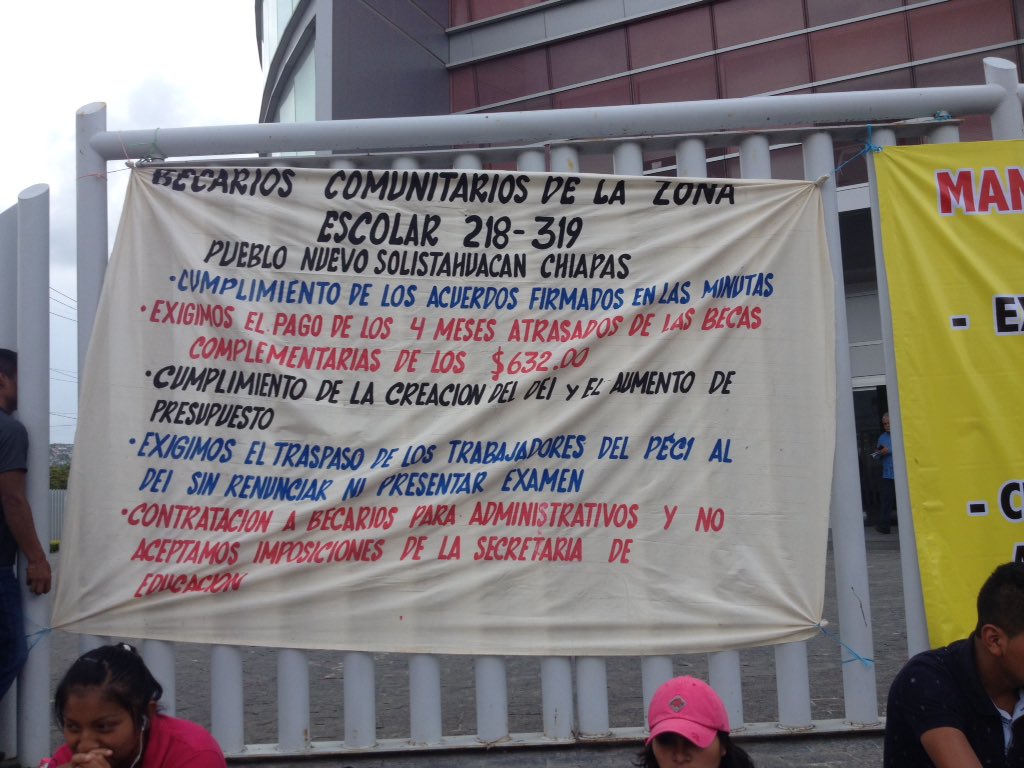 BECARIOS COMUNITARIOS DE LA ZONA
ESCOLAR 218-319
PUEBLO NUEVO SOLISTAHUACAN CHIAPAS
·CUMPLIMIENTO DE LOS ACUERDOS FIRMADOS EN LAS MINUTAS
·EXIGIMOS EL PAGO DE LOS 4 MESES ATRASADOS DE LAS BECAS
COMPLEMENTARIAS DE LOS $632.00
·CUMPLIMIENTO DE LA CREACION DEL DEI Y EL AUMENTO DE
PRESUPUESTO
·EXIGIMOS EL TRASPASO DE LOS TRABAJADORES DEL PECI AL
DEI SIN RENUNCIAR NI PRESENTAR EXAMEN
·CONTRATACION A BECARIOS PARA ADMINISTRATIVOS Y NO
ACEPTAMOS IMPOSICIONES DE LA SECRETARIA DE
EDUCACION
MAN
- EX
- C